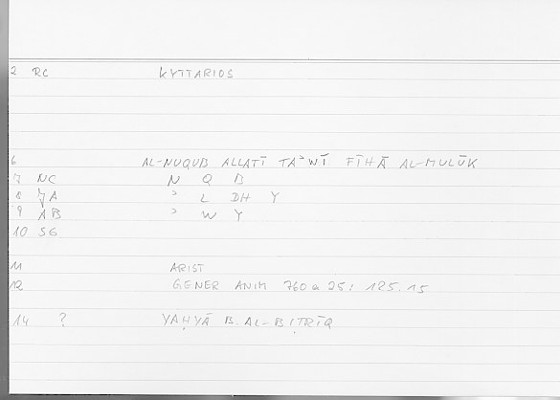 2 RC KYTTARIOS
6 AL-NUQUB ALLATĪ TAʾWĪ FĪHĀ AL-MULŪK
7 NC N Q B
8 YA ʾ L DH Y
9 AB ʾ W Y
10 SG
11 ARIST
12 GENER ANIM 760 a 25; 125.15
14 ? YAḤYĀ B. AL-BIṬRĪQ